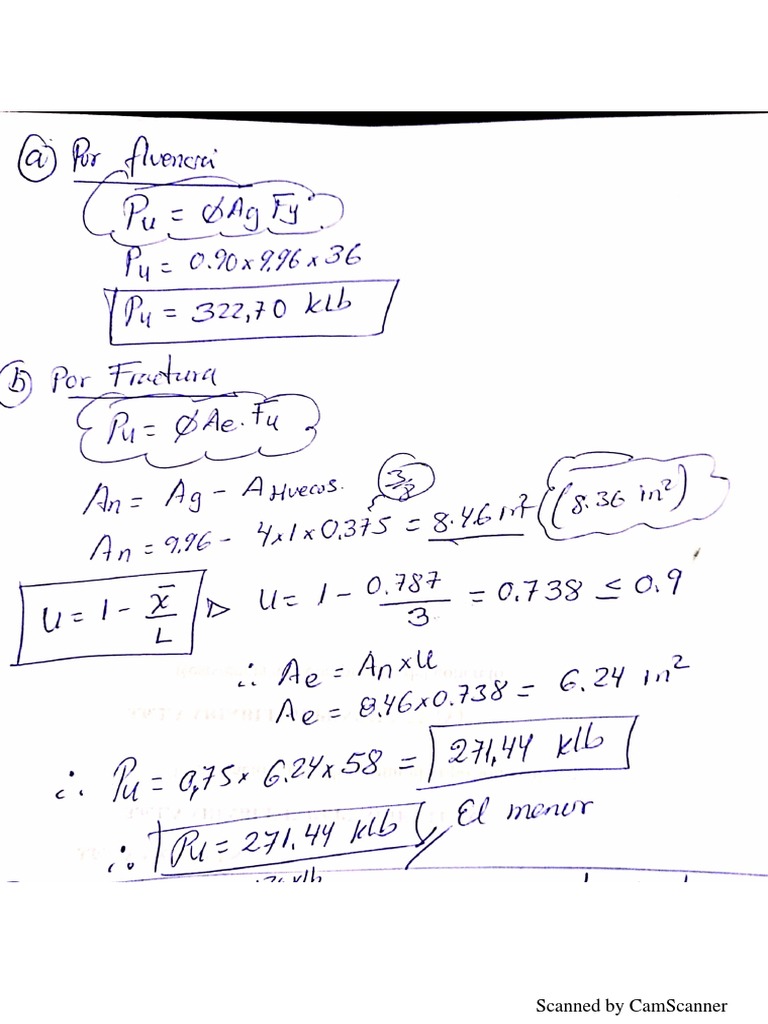 a) Por fluencia
Pu = ØAg Fy
Pu = 0.90 x 9.96 x 36
Pu = 322,70 klb
b) Por Fractura
Pu = ØAe. Fu
An = Ag - A Huecos. 3/8
An = 9.96 - 4x1x0.375 = 8.46 in² (8.36 in²)
U = 1 - x̄/L ▷ U = 1 - 0.787/3 = 0.738 ≤ 0.9
∴ Ae = An x U
Ae = 8.46 x 0.738 = 6.24 in²
∴ Pu = 0,75 x 6.24 x 58 = 271,44 klb
∴ Pu = 271.44 klb El menor
klb
Scanned by CamScanner